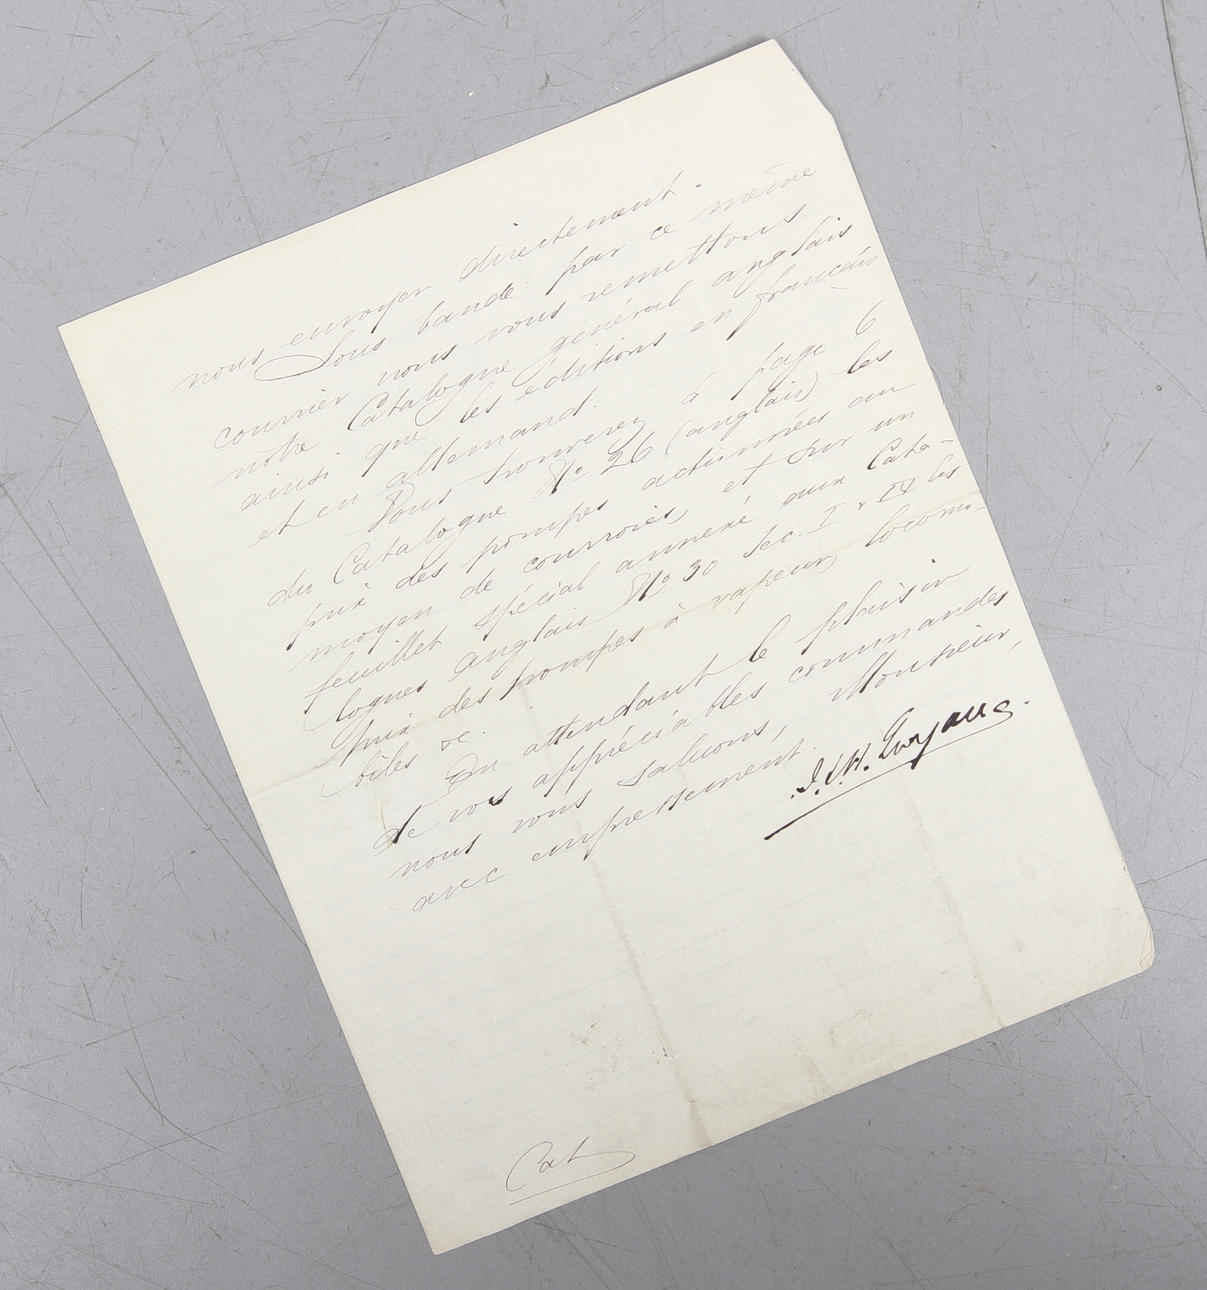 nous envoyer directement.
Sous bande par ce même
courrier nous vous remettons
notre Catalogue général anglais
ainsi que les editions en français
et en allemand.
Vous trouverez à page 6
du Catalogue No 26 (anglais) les
prix des pompes actionnées au
moyen de courroies, et sur un
feuillet spécial annexé aux Cata-
logues anglais No 30 Sec. I & IV les
prix des pompes à vapeur, locomo-
biles &c.
En attendant le plaisir
de vos appréciables commandes
nous vous saluons, Monsieur,
avec empressement.
Cat